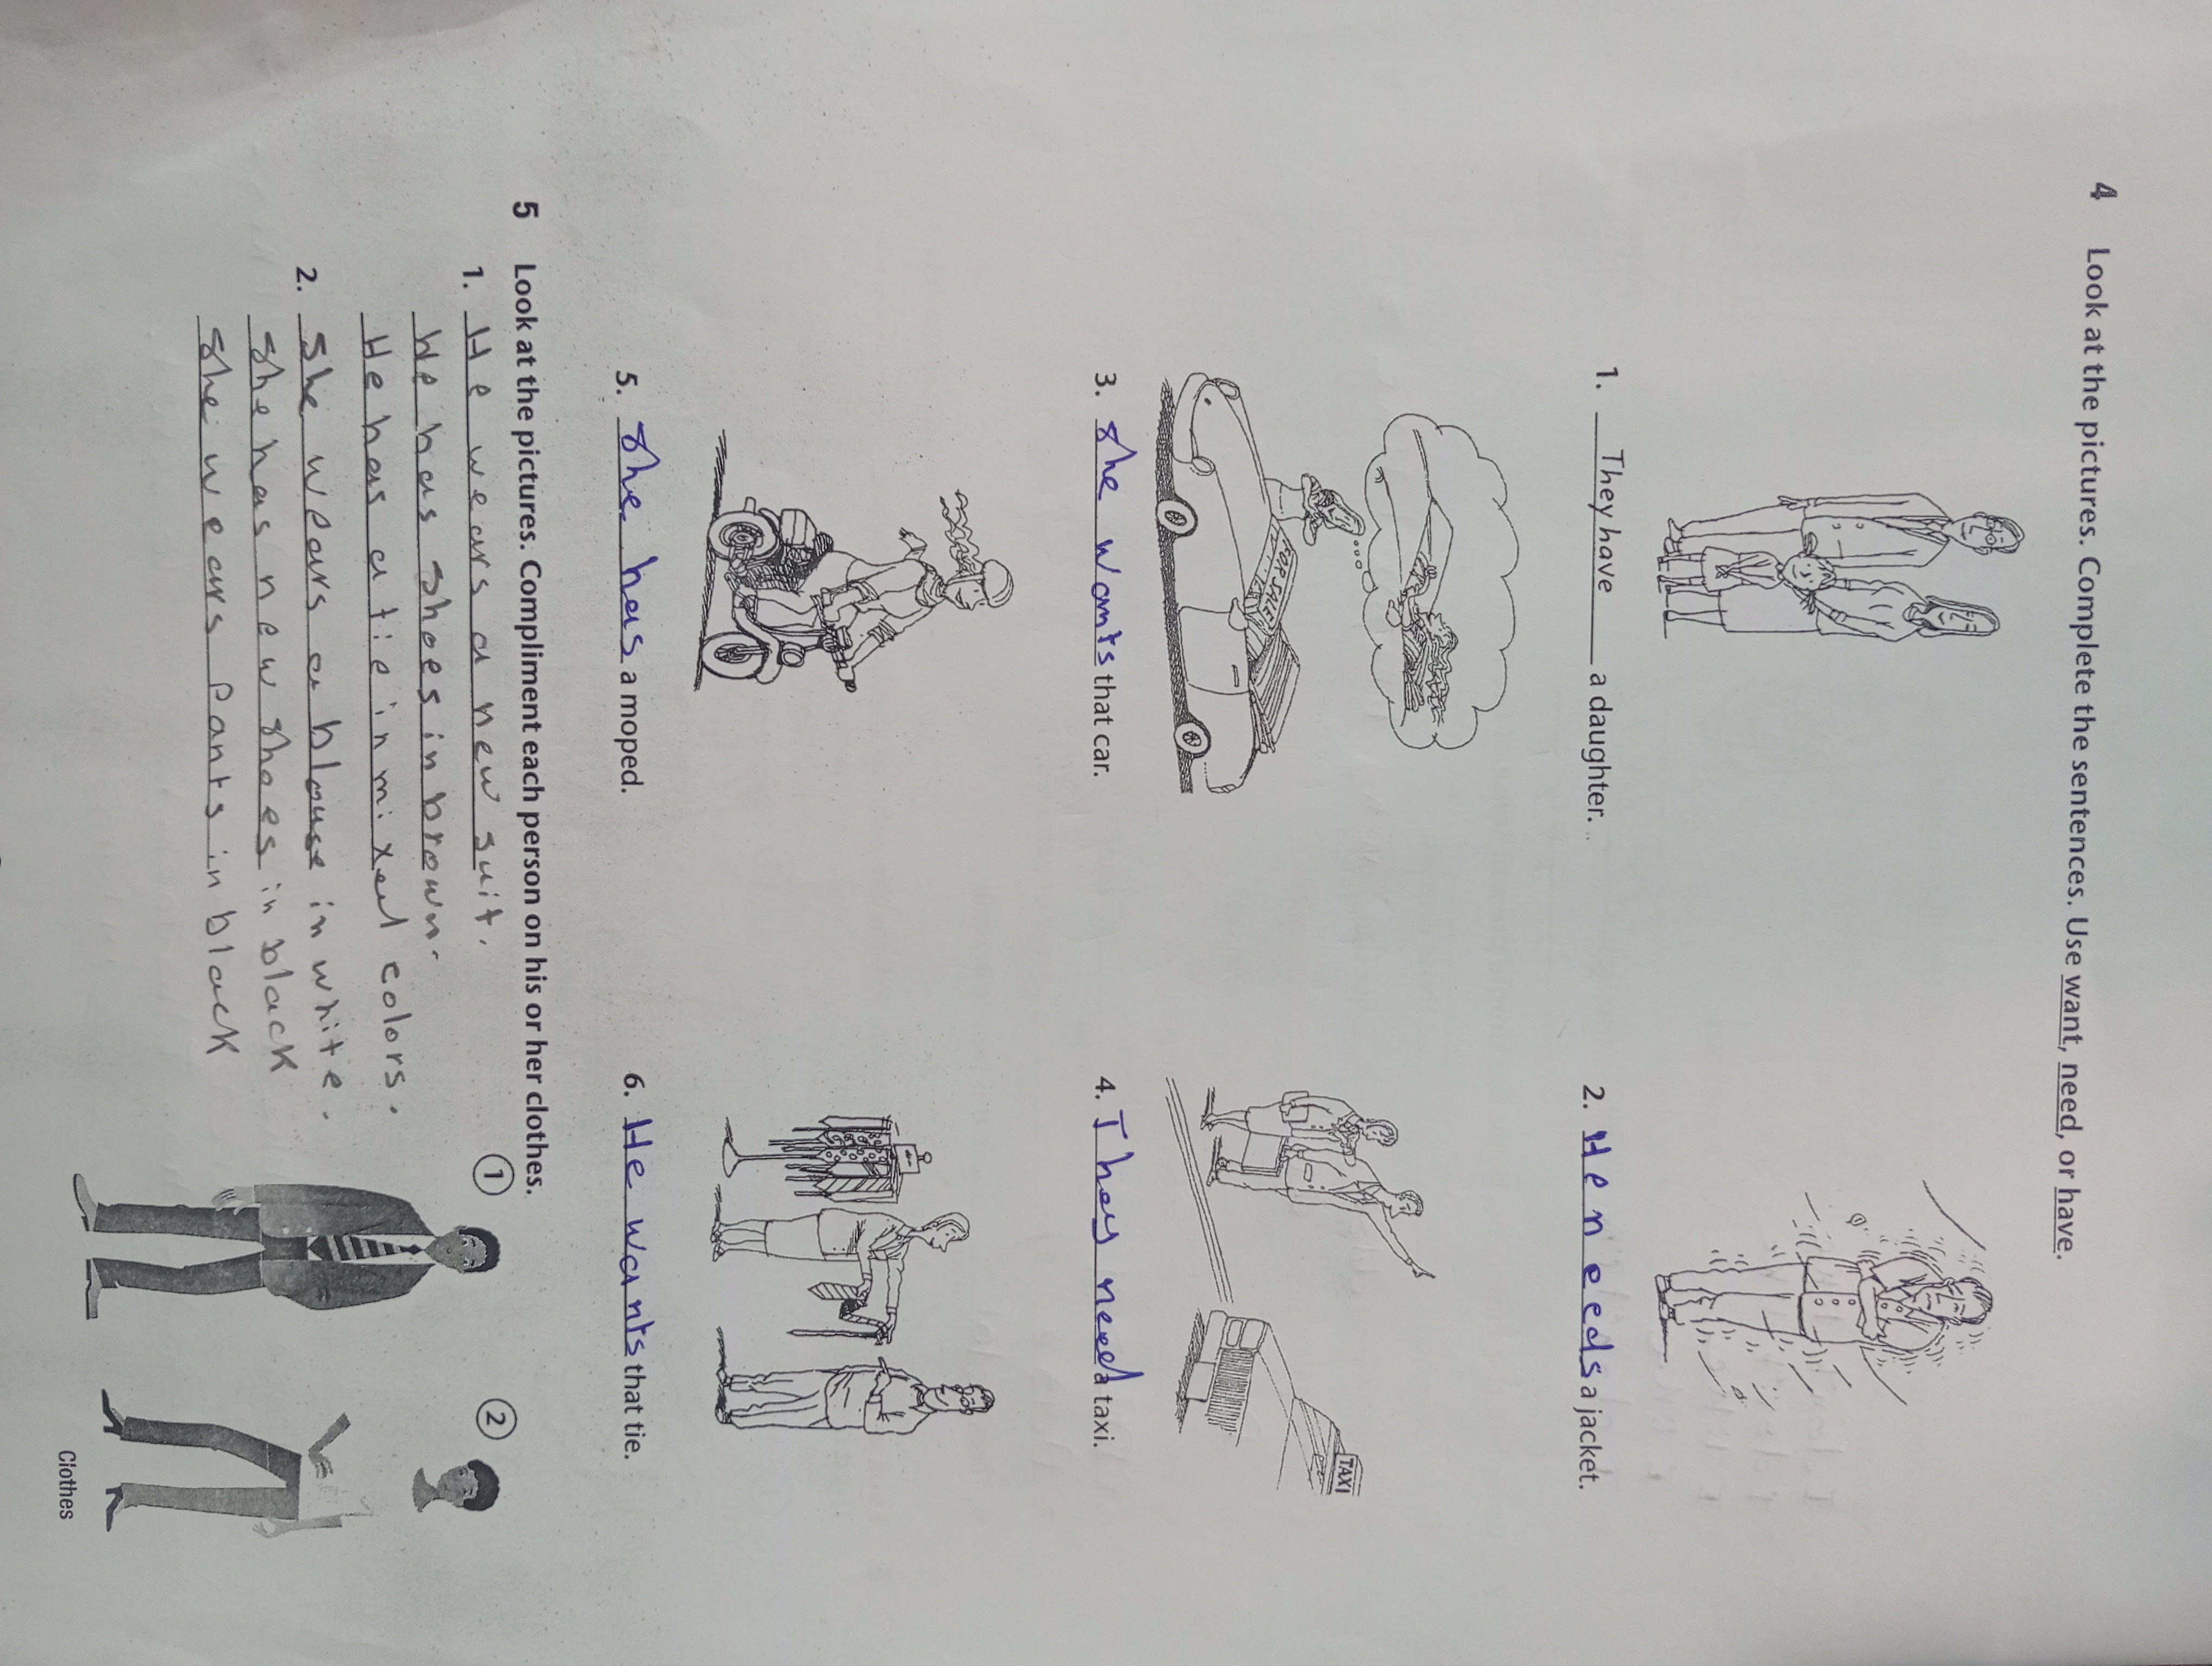 4 Look at the pictures. Complete the sentences. Use want, need, or have.
1. They have a daughter.
2. He needs a jacket.
FOR SALE
TAXI
3. She wants that car.
4. They need a taxi.
5. She has a moped.
6. He wants that tie.
5 Look at the pictures. Compliment each person on his or her clothes.
1 2
1. He wears a new suit.
He has shoes in brown.
He has a tie in mixed colors.
2. She wears a blouse in white.
She has new shoes in black
She wears Pants in black
Clothes